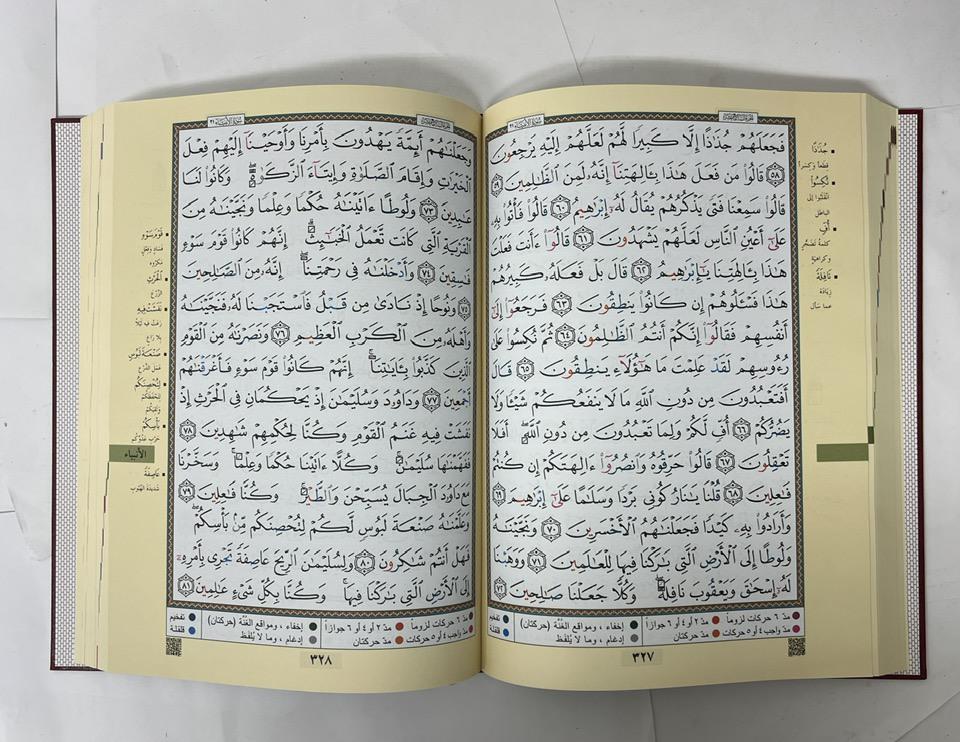 سُورَةُ الأَنْبِيَاء ٢١
فَجَعَلَهُمْ جُذَاذًا إِلَّا كَبِيرًا لَّهُمْ لَعَلَّهُمْ إِلَيْهِ يَرْجِعُونَ
٥٨ قَالُوا۟ مَن فَعَلَ هَٰذَا بِـَٔالِهَتِنَآ إِنَّهُۥ لَمِنَ ٱلظَّٰلِمِينَ ٥٩
قَالُوا۟ سَمِعْنَا فَتًى يَذْكُرُهُمْ يُقَالُ لَهُۥٓ إِبْرَٰهِيمُ ٦٠ قَالُوا۟ فَأْتُوا۟ بِهِۦ
عَلَىٰٓ أَعْيُنِ ٱلنَّاسِ لَعَلَّهُمْ يَشْهَدُونَ ٦١ قَالُوٓا۟ ءَأَنتَ فَعَلْتَ
هَٰذَا بِـَٔالِهَتِنَا يَٰٓإِبْرَٰهِيمُ ٦٢ قَالَ بَلْ فَعَلَهُۥ كَبِيرُهُمْ
هَٰذَا فَسْـَٔلُوهُمْ إِن كَانُوا۟ يَنطِقُونَ ٦٣ فَرَجَعُوٓا۟ إِلَىٰٓ
أَنفُسِهِمْ فَقَالُوٓا۟ إِنَّكُمْ أَنتُمُ ٱلظَّٰلِمُونَ ٦٤ ثُمَّ نُكِسُوا۟ عَلَىٰ
رُءُوسِهِمْ لَقَدْ عَلِمْتَ مَا هَٰٓؤُلَآءِ يَنطِقُونَ ٦٥ قَالَ
أَفَتَعْبُدُونَ مِن دُونِ ٱللَّهِ مَا لَا يَنفَعُكُمْ شَيْـًٔا وَلَا
يَضُرُّكُمْ ٦٦ أُفٍّ لَّكُمْ وَلِمَا تَعْبُدُونَ مِن دُونِ ٱللَّهِ ۖ أَفَلَا
تَعْقِلُونَ ٦٧ قَالُوا۟ حَرِّقُوهُ وَٱنصُرُوٓا۟ ءَالِهَتَكُمْ إِن كُنتُمْ
فَٰعِلِينَ ٦٨ قُلْنَا يَٰنَارُ كُونِى بَرْدًا وَسَلَٰمًا عَلَىٰٓ إِبْرَٰهِيمَ ٦٩
وَأَرَادُوا۟ بِهِۦ كَيْدًا فَجَعَلْنَٰهُمُ ٱلْأَخْسَرِينَ ٧٠ وَنَجَّيْنَٰهُ
وَلُوطًا إِلَى ٱلْأَرْضِ ٱلَّتِى بَٰرَكْنَا فِيهَا لِلْعَٰلَمِينَ ٧١ وَوَهَبْنَا
لَهُۥٓ إِسْحَٰقَ وَيَعْقُوبَ نَافِلَةً ۖ وَكُلًّا جَعَلْنَا صَٰلِحِينَ ٧٢
جُذَذًا
قِطَعاً وَكِسَراً
نُكِسُوا
انْقَلَبُوا إلى
الباطل
أُفٍّ
كَلِمَةُ تَضَجُّرٍ
وكَرَاهِيَةٍ
نَافِلَةً
زِيَادَةً
عما سأل
مدّ ٦ حركات لزوماً مدّ ٢ أو ٤ أو ٦ جوازاً إخفاء، ومواقع الغُنَّة (حركتان) تفخيم
مدّ واجب ٤ أو ٥ حركات مدّ حركتان إدغام، وما لا يُلفَظ قلقلة
٣٢٧
سُورَةُ الأَنْبِيَاء ٢١
وَجَعَلْنَٰهُمْ أَئِمَّةً يَهْدُونَ بِأَمْرِنَا وَأَوْحَيْنَآ إِلَيْهِمْ فِعْلَ
ٱلْخَيْرَٰتِ وَإِقَامَ ٱلصَّلَوٰةِ وَإِيتَآءَ ٱلزَّكَوٰةِ ۖ وَكَانُوا۟ لَنَا
عَٰبِدِينَ ٧٣ وَلُوطًا ءَاتَيْنَٰهُ حُكْمًا وَعِلْمًا وَنَجَّيْنَٰهُ مِنَ
ٱلْقَرْيَةِ ٱلَّتِى كَانَت تَّعْمَلُ ٱلْخَبَٰٓئِثَ ۗ إِنَّهُمْ كَانُوا۟ قَوْمَ سَوْءٍ
فَٰسِقِينَ ٧٤ وَأَدْخَلْنَٰهُ فِى رَحْمَتِنَآ ۖ إِنَّهُۥ مِنَ ٱلصَّٰلِحِينَ
٧٥ وَنُوحًا إِذْ نَادَىٰ مِن قَبْلُ فَٱسْتَجَبْنَا لَهُۥ فَنَجَّيْنَٰهُ
وَأَهْلَهُۥ مِنَ ٱلْكَرْبِ ٱلْعَظِيمِ ٧٦ وَنَصَرْنَٰهُ مِنَ ٱلْقَوْمِ
ٱلَّذِينَ كَذَّبُوا۟ بِـَٔايَٰتِنَآ ۚ إِنَّهُمْ كَانُوا۟ قَوْمَ سَوْءٍ فَأَغْرَقْنَٰهُمْ
أَجْمَعِينَ ٧٧ وَدَاوُۥدَ وَسُلَيْمَٰنَ إِذْ يَحْكُمَانِ فِى ٱلْحَرْثِ إِذْ
نَفَشَتْ فِيهِ غَنَمُ ٱلْقَوْمِ وَكُنَّا لِحُكْمِهِمْ شَٰهِدِينَ ٧٨
فَفَهَّمْنَٰهَا سُلَيْمَٰنَ ۚ وَكُلًّا ءَاتَيْنَا حُكْمًا وَعِلْمًا ۚ وَسَخَّرْنَا
مَعَ دَاوُۥدَ ٱلْجِبَالَ يُسَبِّحْنَ وَٱلطَّيْرَ ۚ وَكُنَّا فَٰعِلِينَ ٧٩
وَعَلَّمْنَٰهُ صَنْعَةَ لَبُوسٍ لَّكُمْ لِتُحْصِنَكُم مِّنۢ بَأْسِكُمْ ۖ
فَهَلْ أَنتُمْ شَٰكِرُونَ ٨٠ وَلِسُلَيْمَٰنَ ٱلرِّيحَ عَاصِفَةً تَجْرِى بِأَمْرِهِۦٓ
إِلَى ٱلْأَرْضِ ٱلَّتِى بَٰرَكْنَا فِيهَا ۚ وَكُنَّا بِكُلِّ شَىْءٍ عَٰلِمِينَ ٨١
قَوْمَ سَوْءٍ
فَسَادٍ وَفِعْلٍ
مَكْرُوهٍ
الْحَرْثِ
الزَّرْع
نَفَشَتْ فِيهِ
رَعَتْ فيه لَيْلًا
بلا رَاعٍ
صَنْعَةَ لَبُوسٍ
عَمَلَ الدُّرُوعِ
لِتُحْصِنَكُم
لِتَحْفَظَكُمْ
وَتَقِيَكُمْ
بَأْسِكُمْ
حَرْبِ عَدُوِّكُم
الأنبياء
عَاصِفَةً
شَدِيدَةَ الهُبُوبِ
مدّ ٦ حركات لزوماً مدّ ٢ أو ٤ أو ٦ جوازاً إخفاء، ومواقع الغُنَّة (حركتان) تفخيم
مدّ واجب ٤ أو ٥ حركات مدّ حركتان إدغام، وما لا يُلفَظ قلقلة
٣٢٨